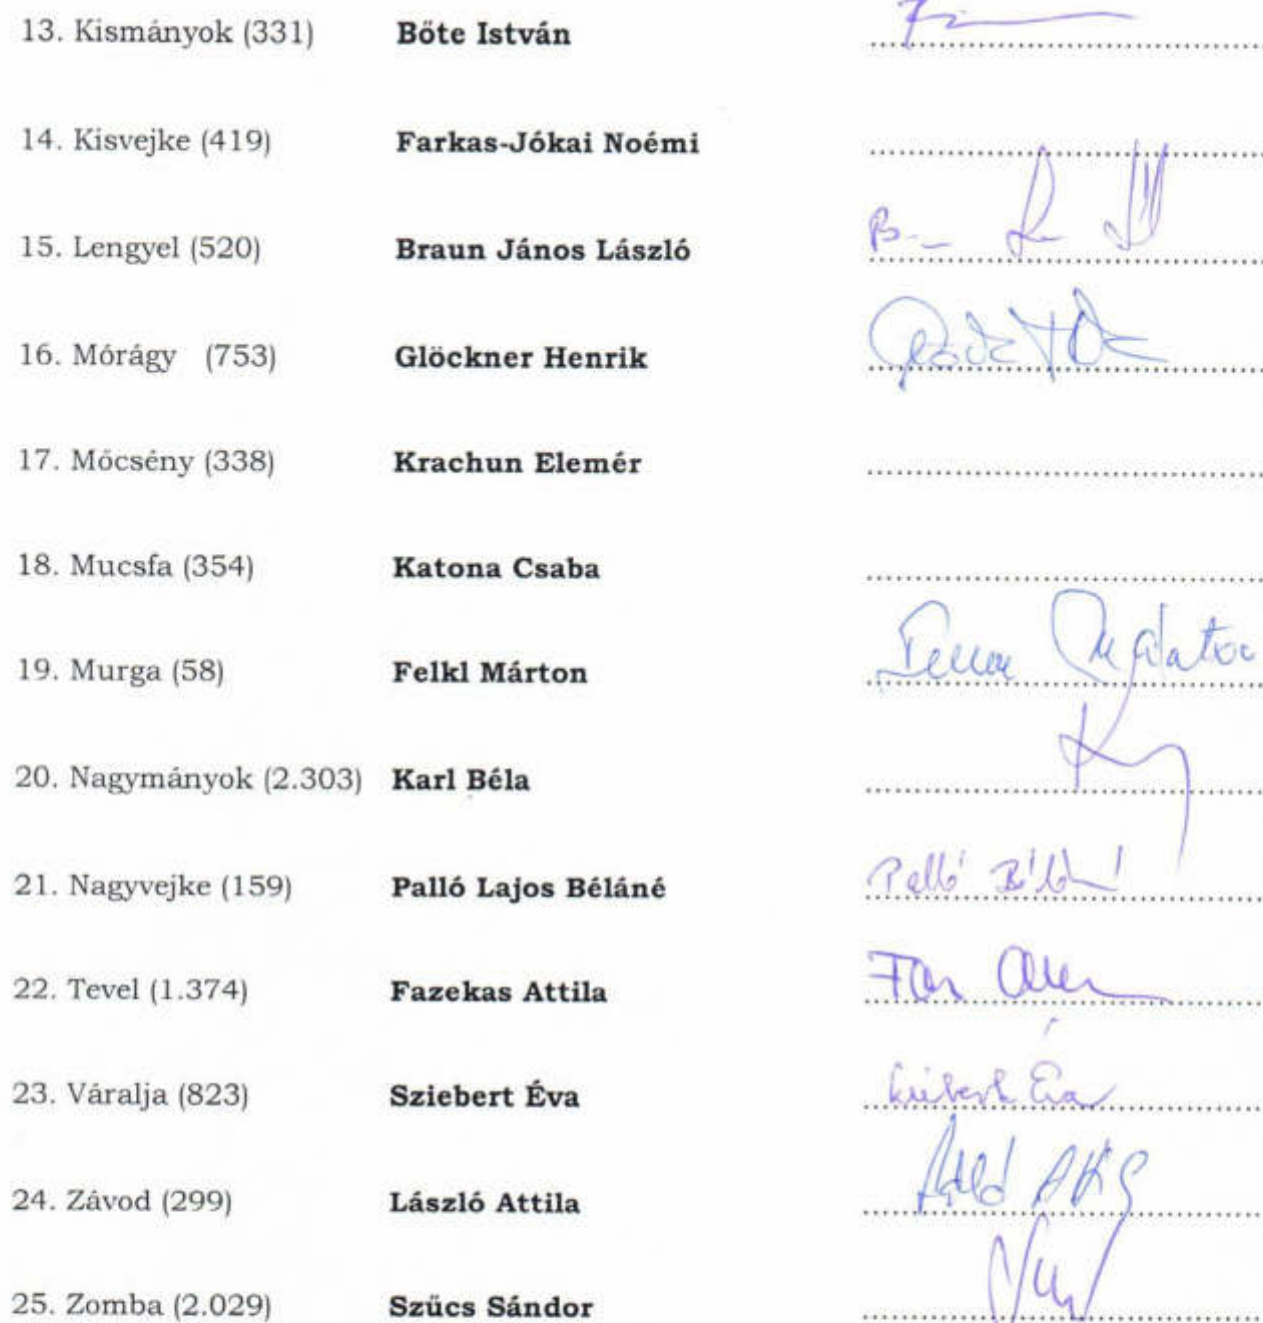 13. Kismányok (331) Bőte István
14. Kisvejke (419) Farkas-Jókai Noémi
15. Lengyel (520) Braun János László
16. Mórágy (753) Glöckner Henrik
17. Mőcsény (338) Krachun Elemér
18. Mucsfa (354) Katona Csaba
19. Murga (58) Felkl Márton
20. Nagymányok (2.303) Karl Béla
21. Nagyvejke (159) Palló Lajos Béláné Palló
22. Tevel (1.374) Fazekas Attila
23. Váralja (823) Sziebert Éva Éva
24. Závod (299) László Attila
25. Zomba (2.029) Szűcs Sándor